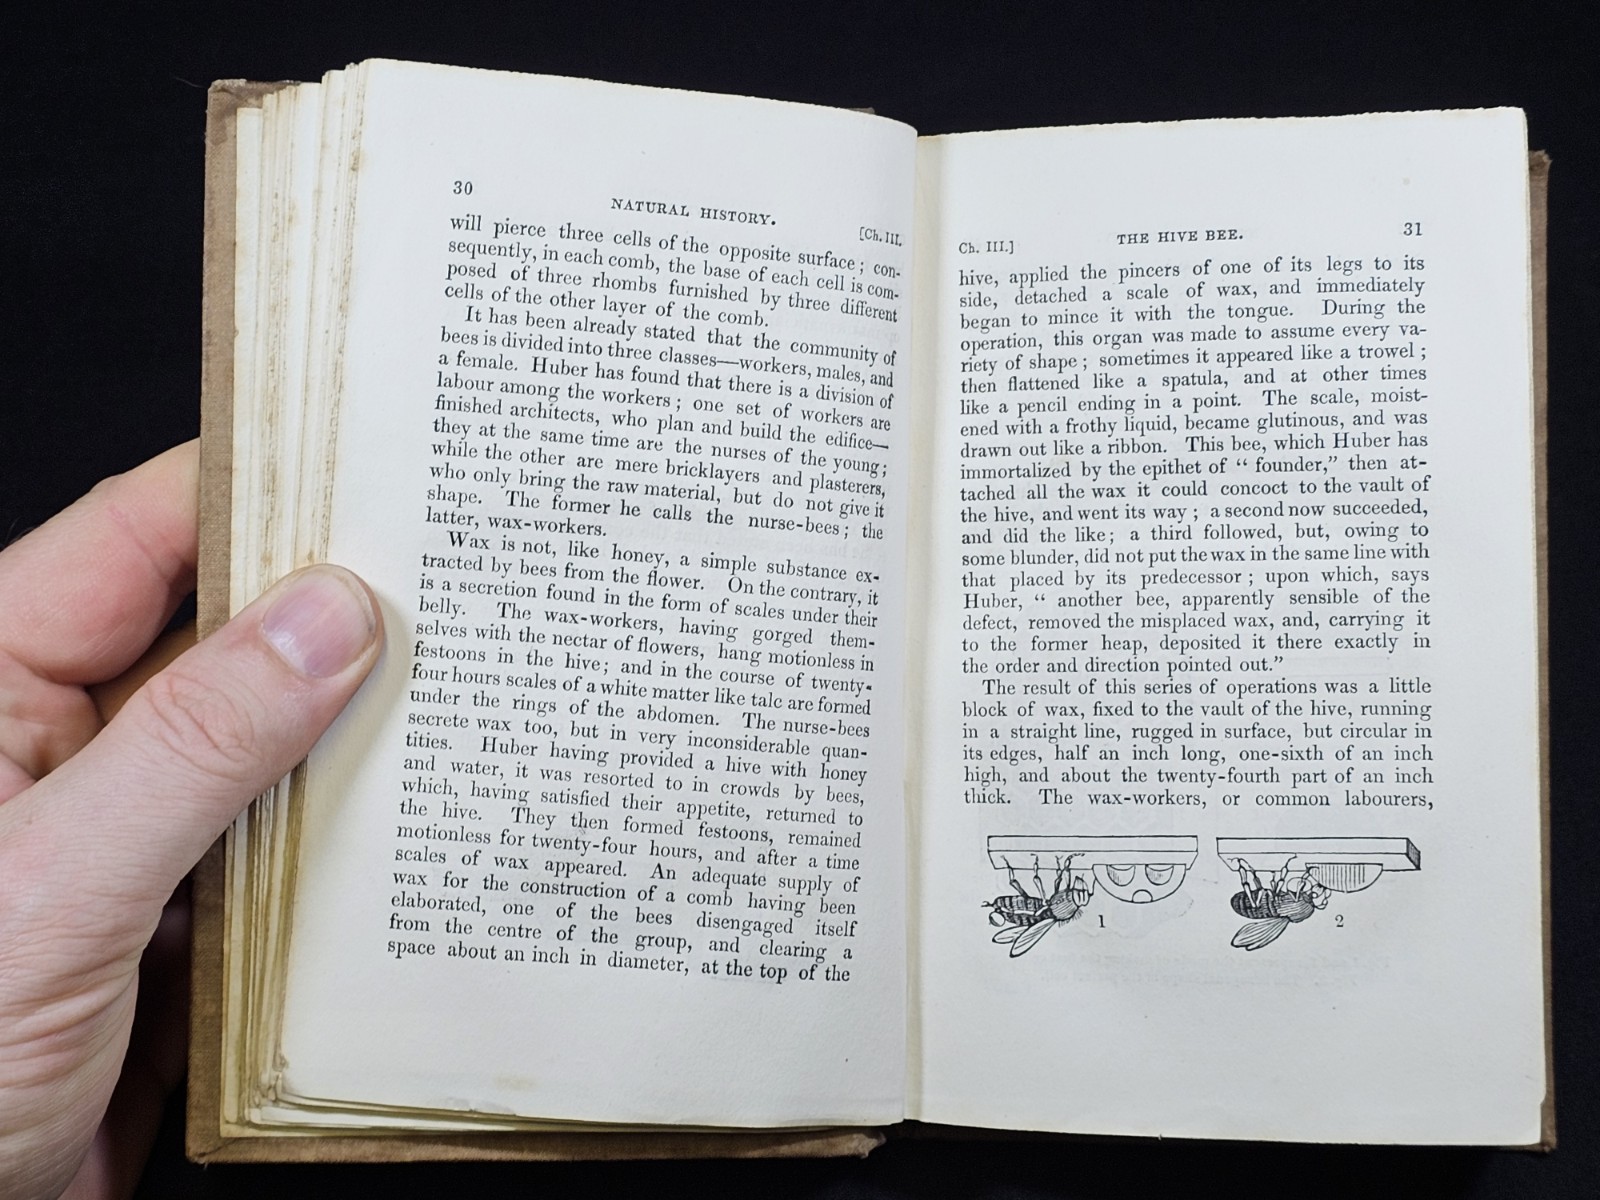 30
NATURAL HISTORY.
[Ch. III.
will pierce three cells of the opposite surface; con-
sequently, in each comb, the base of each cell is com-
posed of three rhombs furnished by three different
cells of the other layer of the comb.
It has been already stated that the community of
bees is divided into three classes—workers, males, and
a female. Huber has found that there is a division of
labour among the workers; one set of workers are
finished architects, who plan and build the edifice—
they at the same time are the nurses of the young;
while the other are mere bricklayers and plasterers,
who only bring the raw material, but do not give it
shape. The former he calls the nurse-bees; the
latter, wax-workers.
Wax is not, like honey, a simple substance ex-
tracted by bees from the flower. On the contrary, it
is a secretion found in the form of scales under their
belly. The wax-workers, having gorged them-
selves with the nectar of flowers, hang motionless in
festoons in the hive; and in the course of twenty-
four hours scales of a white matter like talc are formed
under the rings of the abdomen. The nurse-bees
secrete wax too, but in very inconsiderable quan-
tities. Huber having provided a hive with honey
and water, it was resorted to in crowds by bees,
which, having satisfied their appetite, returned to
the hive. They then formed festoons, remained
motionless for twenty-four hours, and after a time
scales of wax appeared. An adequate supply of
wax for the construction of a comb having been
elaborated, one of the bees disengaged itself
from the centre of the group, and clearing a
space about an inch in diameter, at the top of the
Ch. III.]
THE HIVE BEE.
31
hive, applied the pincers of one of its legs to its
side, detached a scale of wax, and immediately
began to mince it with the tongue. During the
operation, this organ was made to assume every va-
riety of shape; sometimes it appeared like a trowel;
then flattened like a spatula, and at other times
like a pencil ending in a point. The scale, moist-
ened with a frothy liquid, became glutinous, and was
drawn out like a ribbon. This bee, which Huber has
immortalized by the epithet of “founder,” then at-
tached all the wax it could concoct to the vault of
the hive, and went its way; a second now succeeded,
and did the like; a third followed, but, owing to
some blunder, did not put the wax in the same line with
that placed by its predecessor; upon which, says
Huber, “another bee, apparently sensible of the
defect, removed the misplaced wax, and, carrying it
to the former heap, deposited it there exactly in
the order and direction pointed out.”
The result of this series of operations was a little
block of wax, fixed to the vault of the hive, running
in a straight line, rugged in surface, but circular in
its edges, half an inch long, one-sixth of an inch
high, and about the twenty-fourth part of an inch
thick. The wax-workers, or common labourers,
1
2